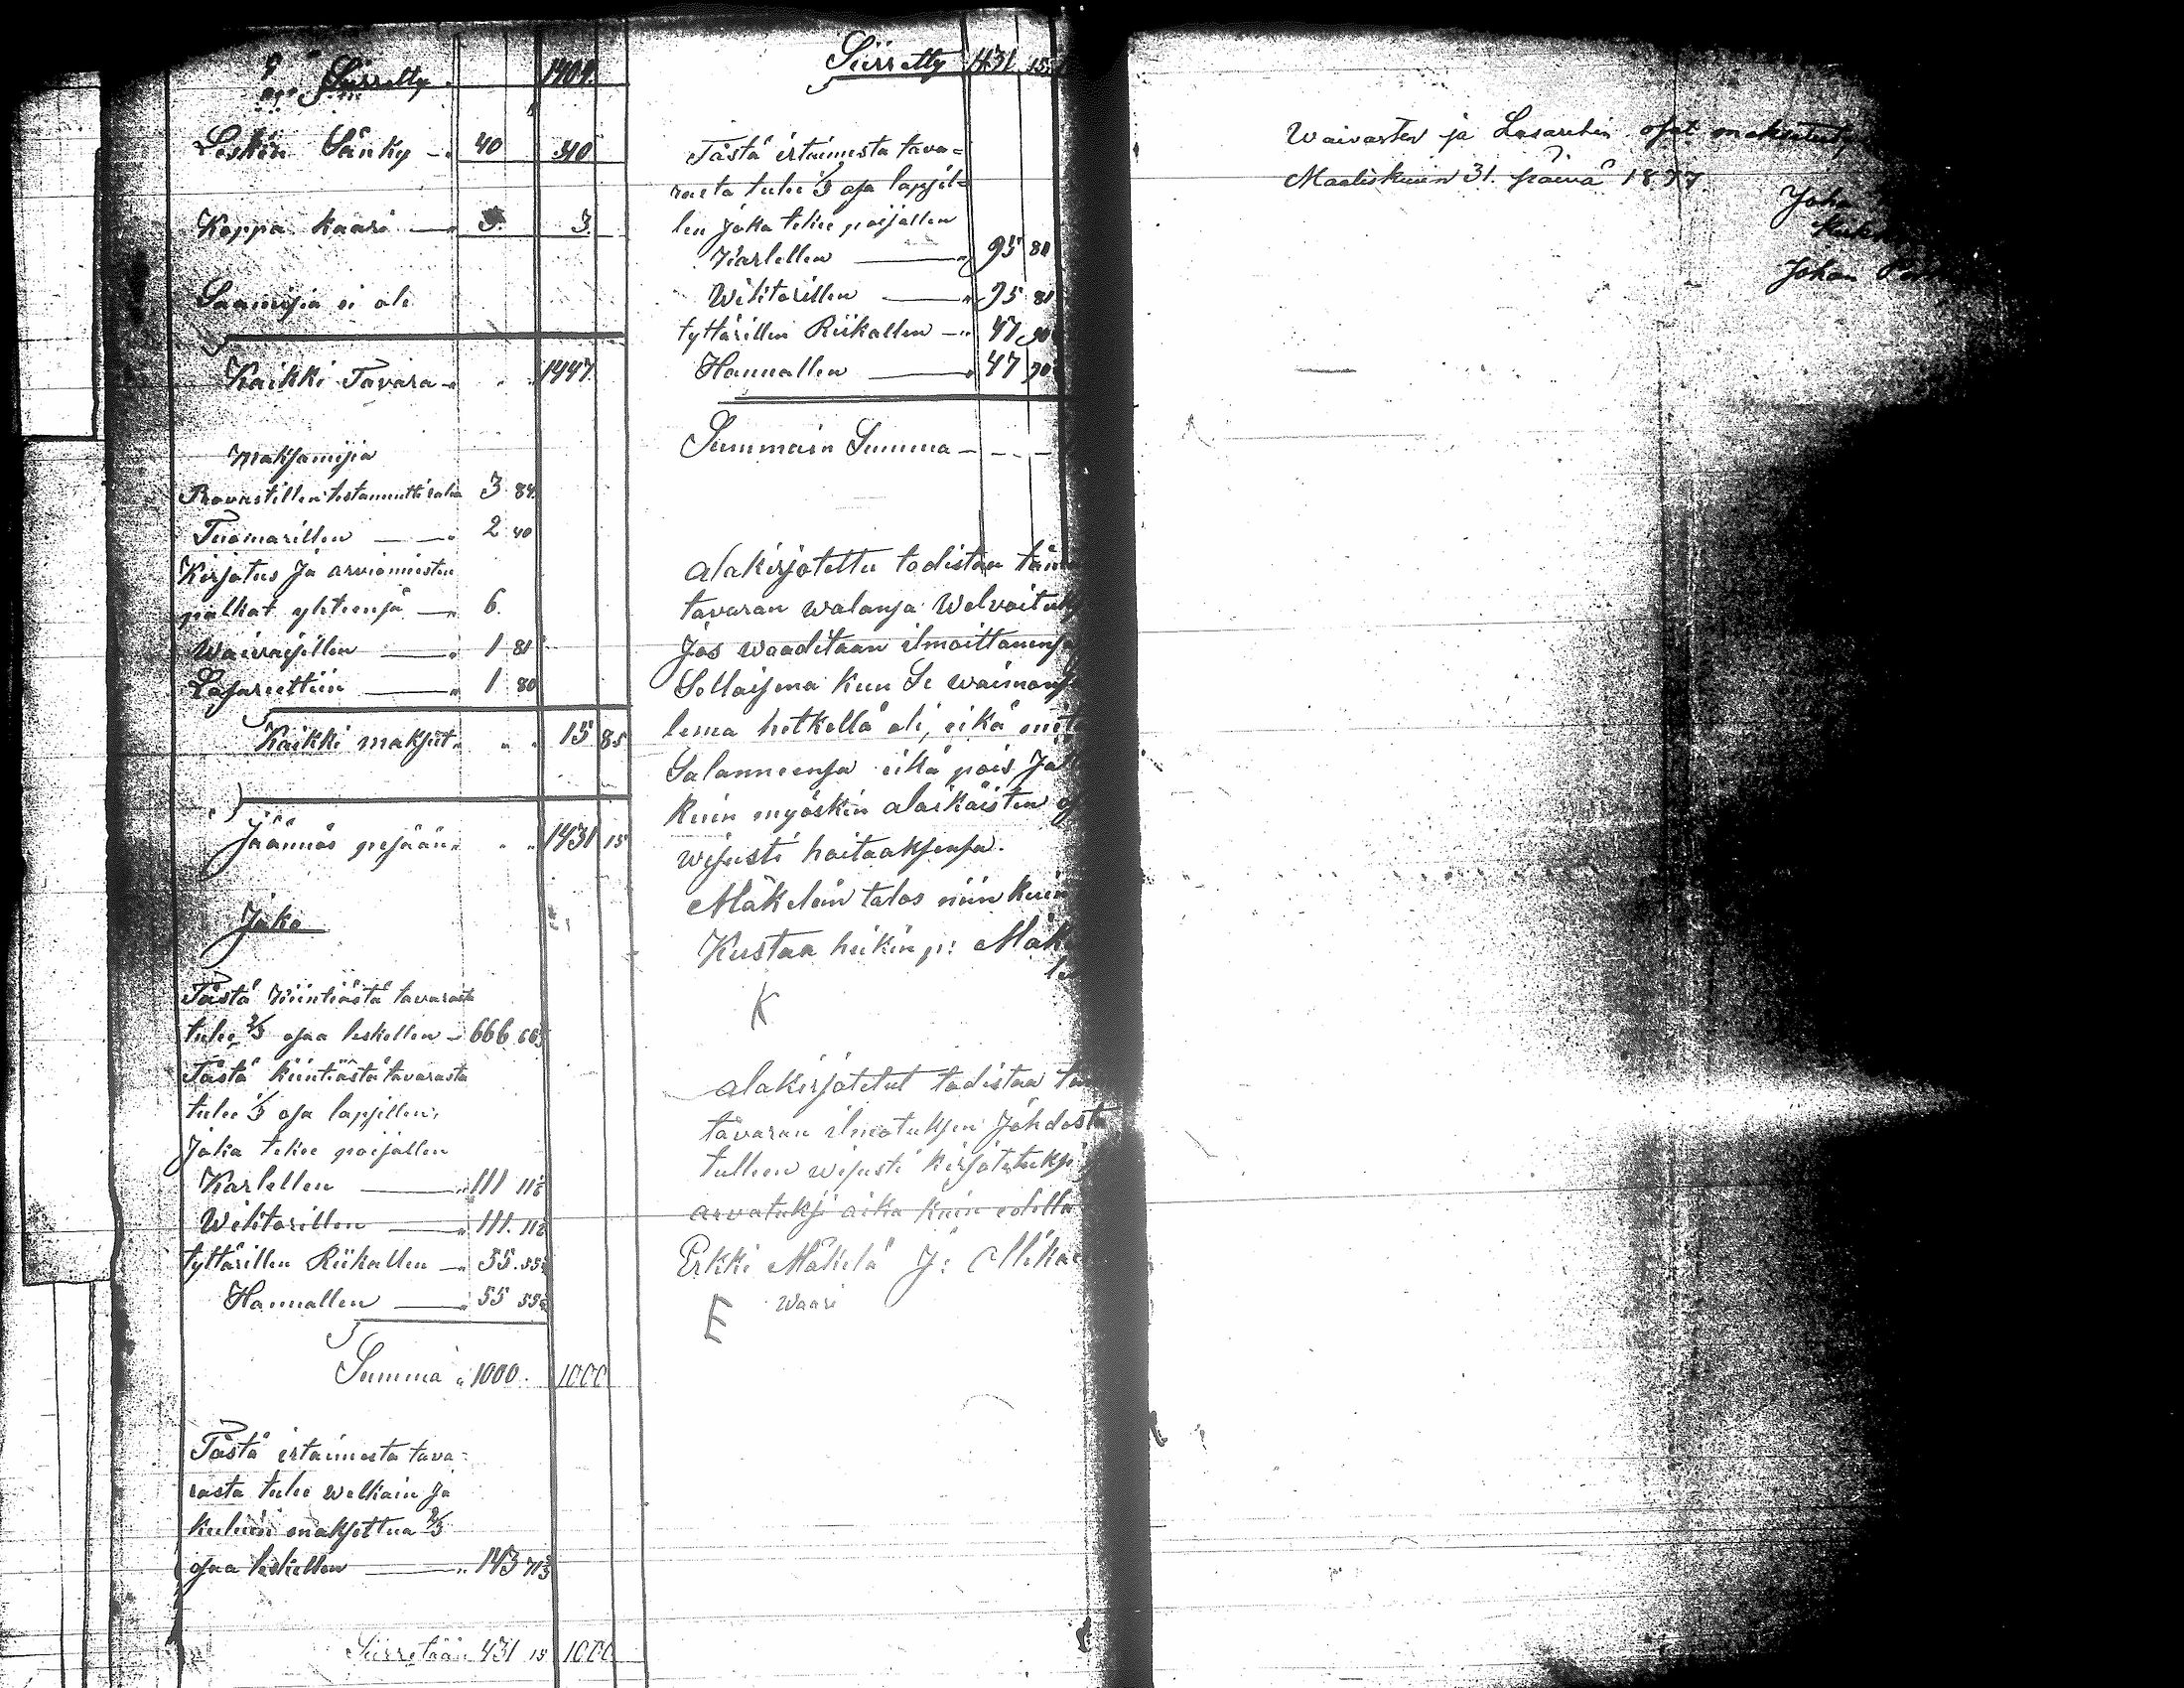 Siirretty 1404.
Lesken Sänky 40 40
Koppa kääri 3. 3.
Saamisia ei ole
Kaikki Tavara 1447.
Maksamisia
Provastillen testamentti raha 3 84
Tuomarillen 2 40
Kirjotus Ja arviomiesten
palkat yhteensä 6.
Waivaisillen 1 81
Lasarettiin 1 80
Kaikki maksut 15 85
Jäännös pesään 1431 15
Jako
Tästä kiintiästä tavarasta
tulee 2/3 osaa leskellen 666 66
Tästä kiintiästä tavarasta
tulee 1/3 osa lapsillen,
Joka tekee poijallen
Karlellen 111 11
Wihtorillen 111. 11
tyttärillen Riikallen 55. 55
Hannallen 55 55
Summa 1000. 1000
Tästä irtaimesta tava=
rasta tulee welkain Ja
kuluin maksettua 2/3
osaa leskellen 143 71
Siirretään 431 15 1000
Siirretty 431 15
Tästä irtaimesta tava=
rasta tulee 1/3 osa lapsil=
len Joka tekee poijallen
Karlellen 95 80
Wihtorillen 95 80
tyttärillen Riikallen 47 90
Hannallen 47 90
Summain Summa
alakirjotettu todistaa
tavaran walansa
Jos waaditaan ilmoittanensa
Sellaisena kun Se
lema hetkellä oli, eikä
Salanneensa eikä pois
kuin myöskin alaikäisten
wisusti hoitaaksensa.
Mäkelän talos niin kuin
Kustaa heikin p:
K
alakirjotetut todistaa
tavaran ilmotuksen Johdosta
tulleen wisusti kirjotetuksi
arvatuksi aika kuin edellä
Erkki Mäkelä J:
E Waari
Waivasten ja Lasaretin osat maksetut,
Maaliskuun 31. päivä 1877.
Johan